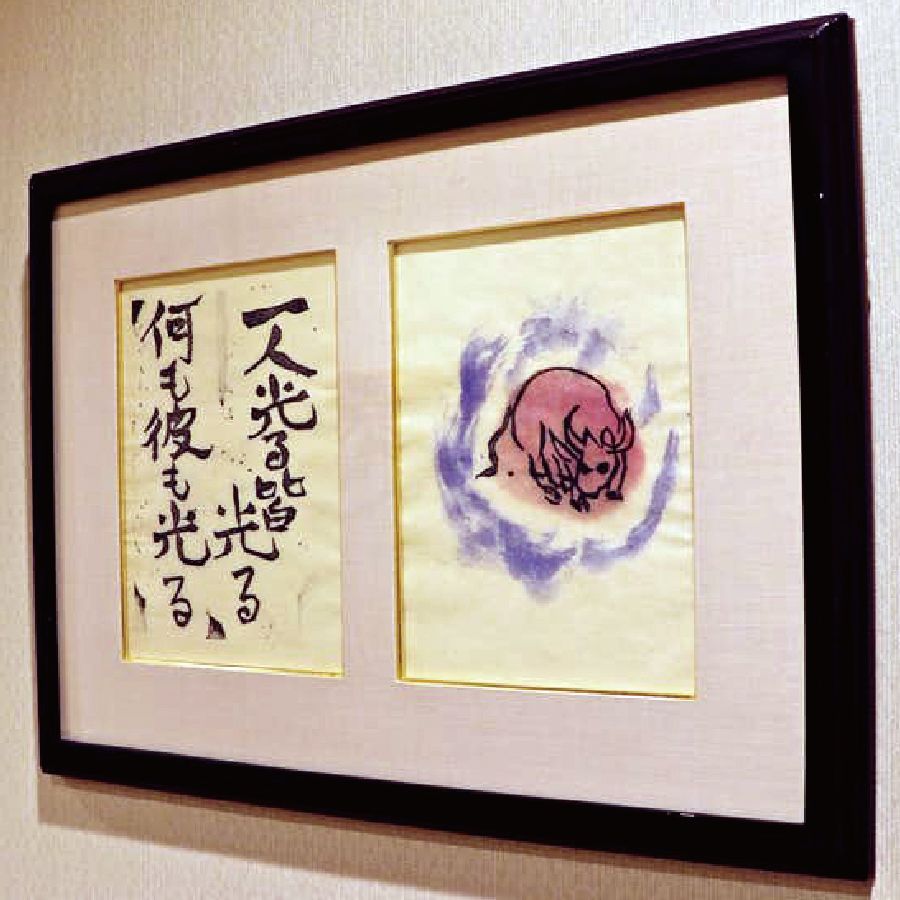 一人光る皆
光る
何も彼も光る